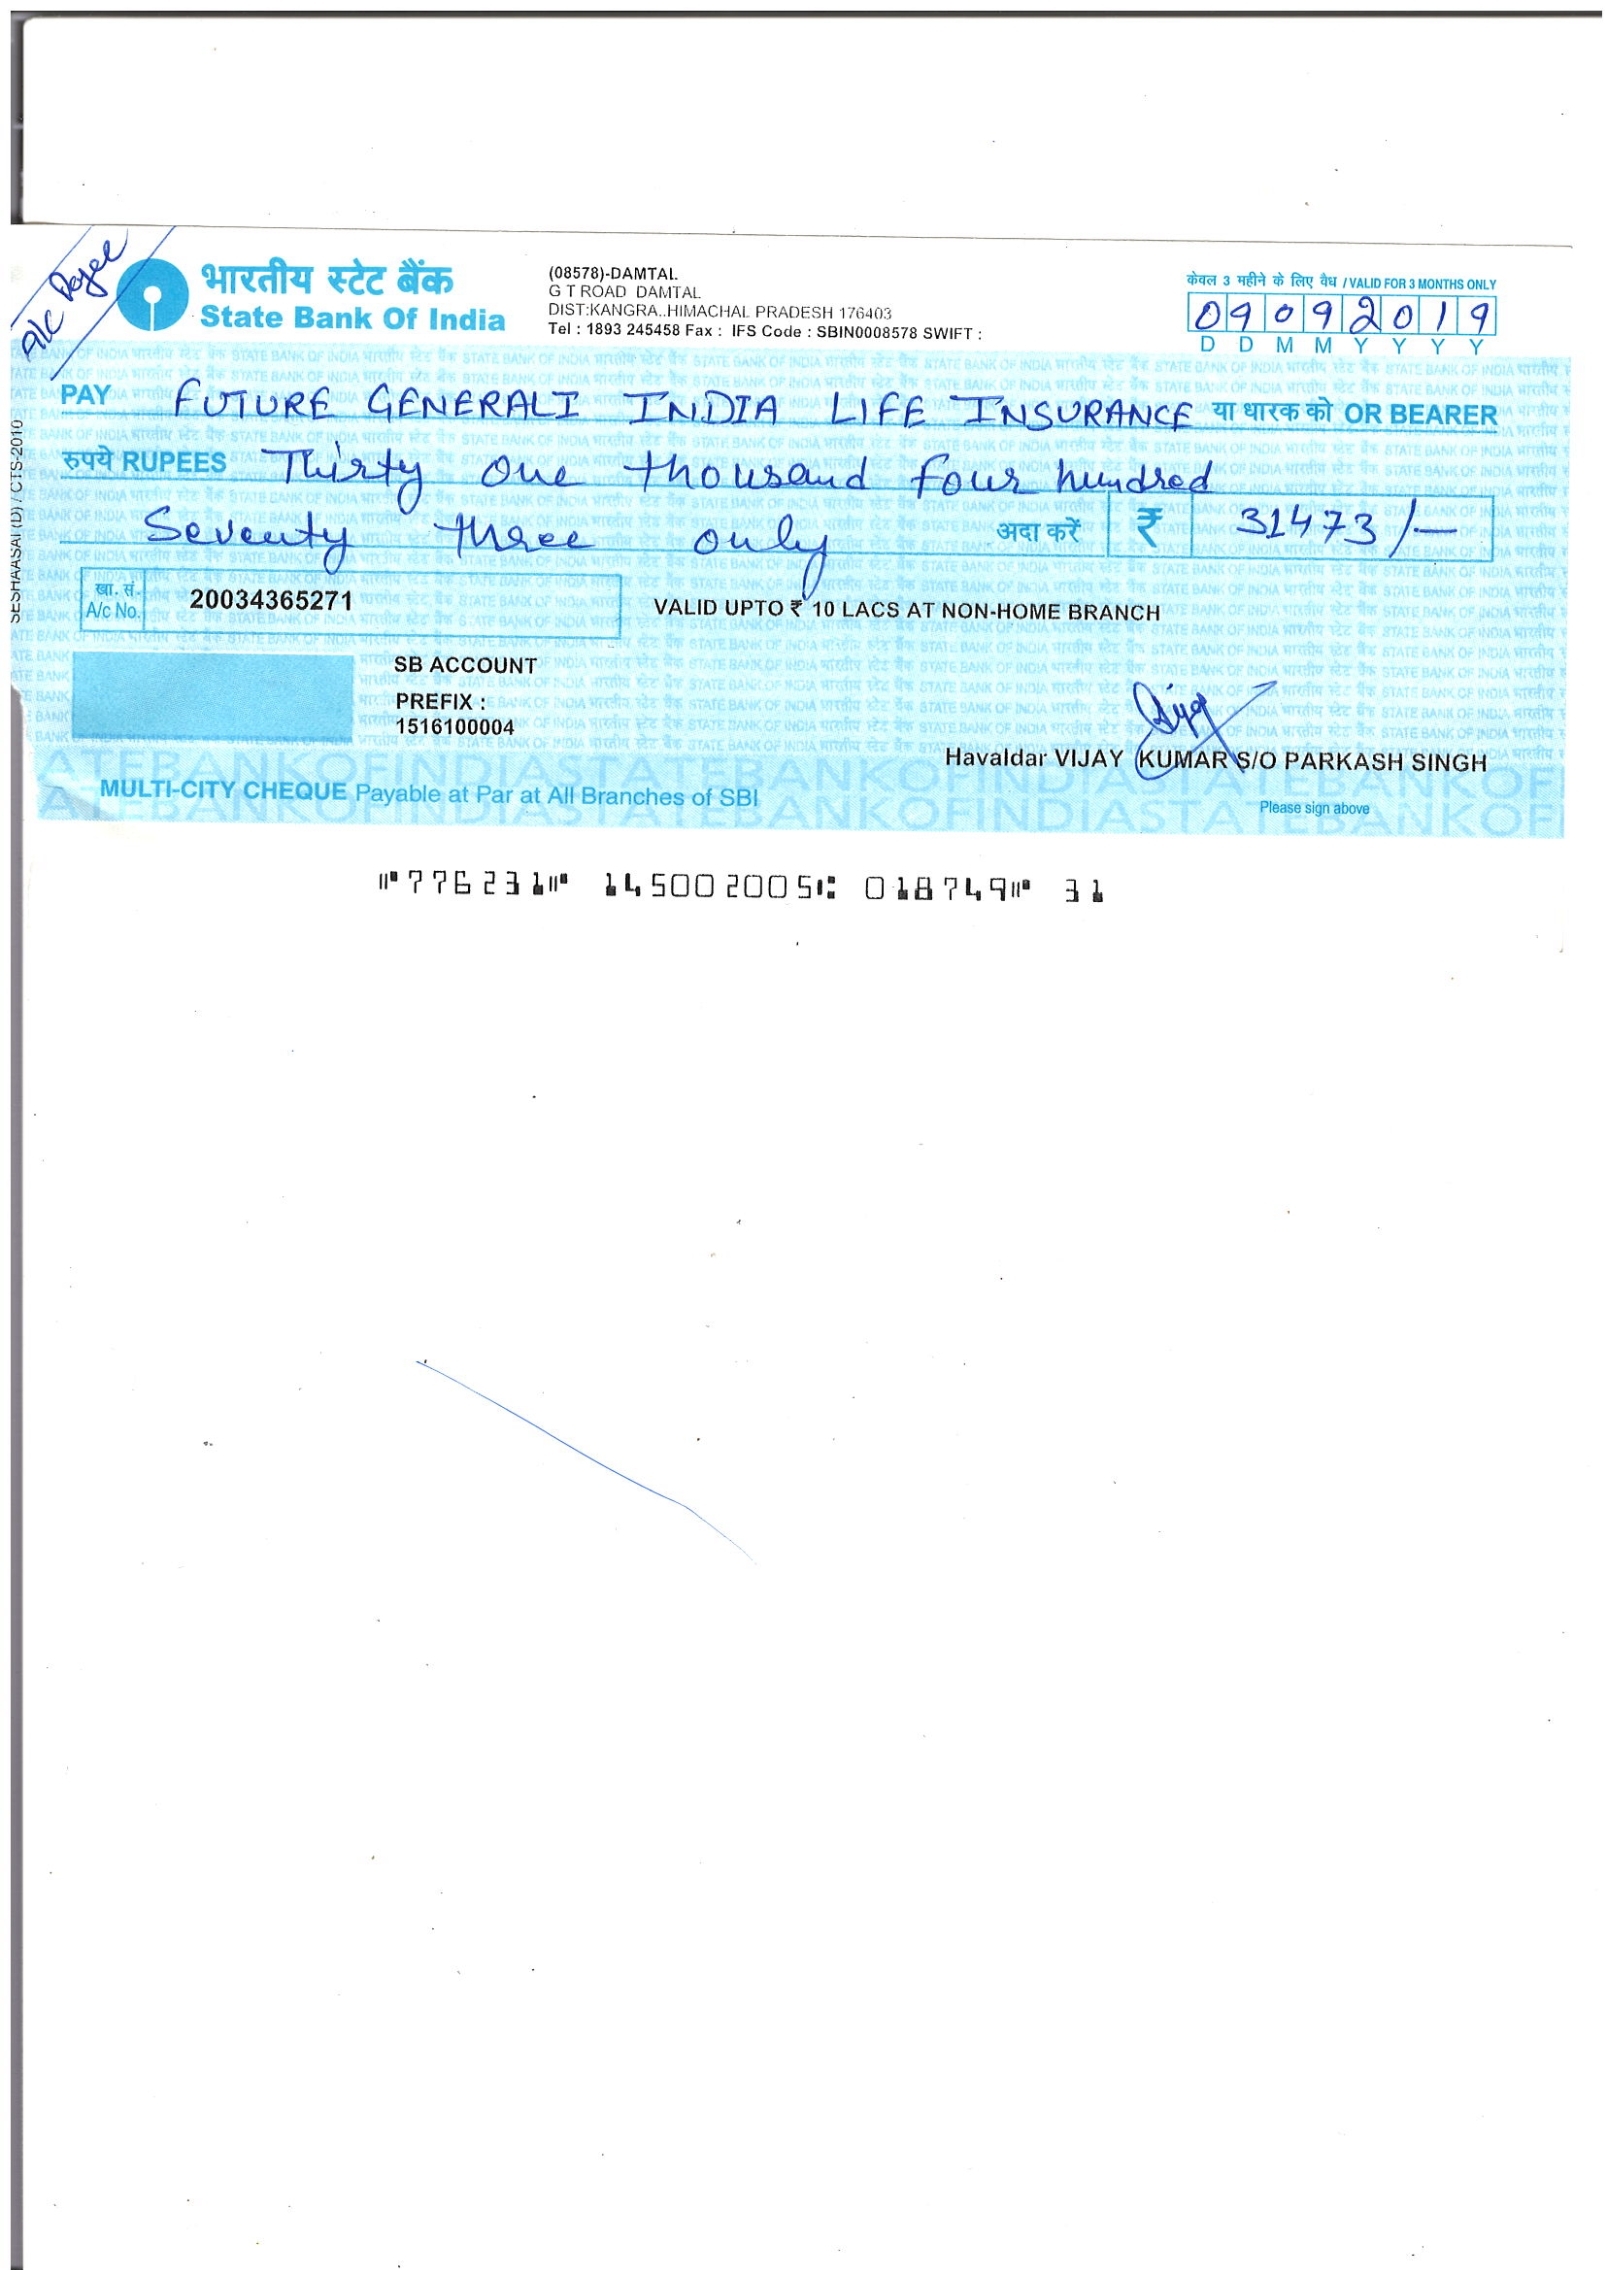 A/c Payee
भारतीय स्टेट बैंक
State Bank Of India
(08578)-DAMTAL
G T ROAD DAMTAL
DIST:KANGRA..HIMACHAL PRADESH 176403
Tel : 1893 245458 Fax : IFS Code : SBIN0008578 SWIFT :
केवल 3 महीने के लिए वैध / VALID FOR 3 MONTHS ONLY
09092019
D D M M Y Y Y Y
PAY FUTURE GENERALI INDIA LIFE INSURANCE या धारक को OR BEARER
रुपये RUPEES Thirty one thousand four hundred
Seventy three only अदा करें ₹ 31473/-
खा. सं.
A/c No. 20034365271
VALID UPTO ₹ 10 LACS AT NON-HOME BRANCH
SB ACCOUNT
PREFIX :
1516100004
Havaldar VIJAY KUMAR S/O PARKASH SINGH
MULTI-CITY CHEQUE Payable at Par at All Branches of SBI
Please sign above
SESHAASAI (D) / CTS-2010
⑈776231⑈ 145002005⑆ 018749⑈ 31